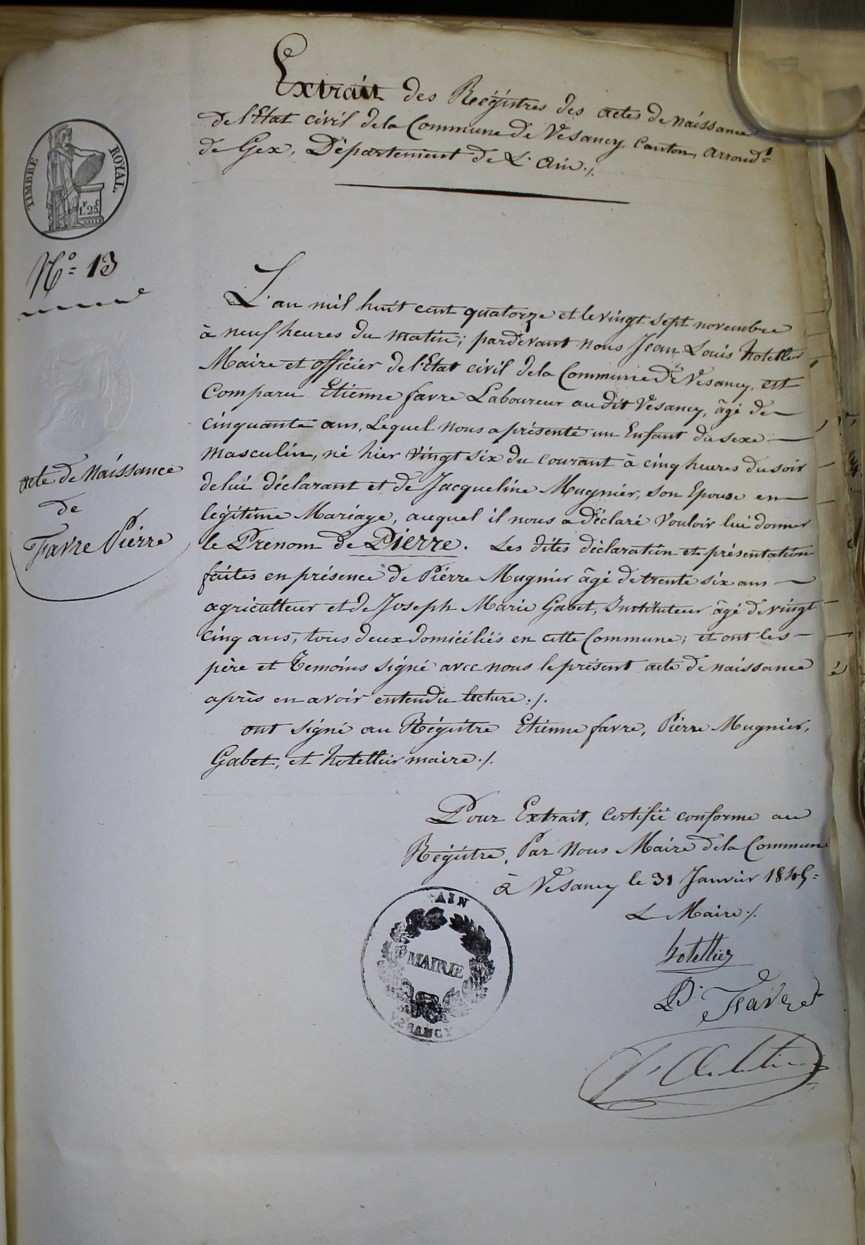 Extrait des Régistres des actes de naissance
de l'Etat civil de la Commune de Vésancy, Canton, Arrond.t
de Gex, Département de L'Ain ./.
TIMBRE ROYAL.
1F. 25
N.o 13
acte de Naissance
de
Favre Pierre
L'an mil huit cent quatorze et le vingt sept novembre
à neuf heures du matin; pardevant nous Jean Louis hotellier
Maire et officier de l'Etat civil de la Commune de Vésancy, est
Comparu Etienne favre Laboureur au dit Vésancy, âgé de
cinquante ans, Lequel nous a présenté un Enfant du sexe
masculin, né hier vingt six du courant à cinq heures du soir
de lui déclarant et de Jacqueline Mugnier, son Epouse en
légitime Mariage, auquel il nous a déclaré vouloir lui donner
le Prénom de Pierre. Les dites déclaration et présentation
faites en présence de Pierre Mugnier âgé de trente six ans
agriculteur et de Joseph Marie Gabet, Instituteur âgé de vingt
cinq ans, tous deux domiciliés en cette Commune; et ont les
père et Témoins signé avec nous le présent acte de naissance
après en avoir entendu lecture ./.
ont signé au Régistre Etienne favre, Pierre Mugnier,
Gabet, et hotellier maire ./.
Pour Extrait, certifié conforme au
Régistre, Par Nous Maire de la Commune
à Vésancy le 31 Janvier 1845
Le Maire ./.
hotellier
AIN
MAIRIE
VESANCY